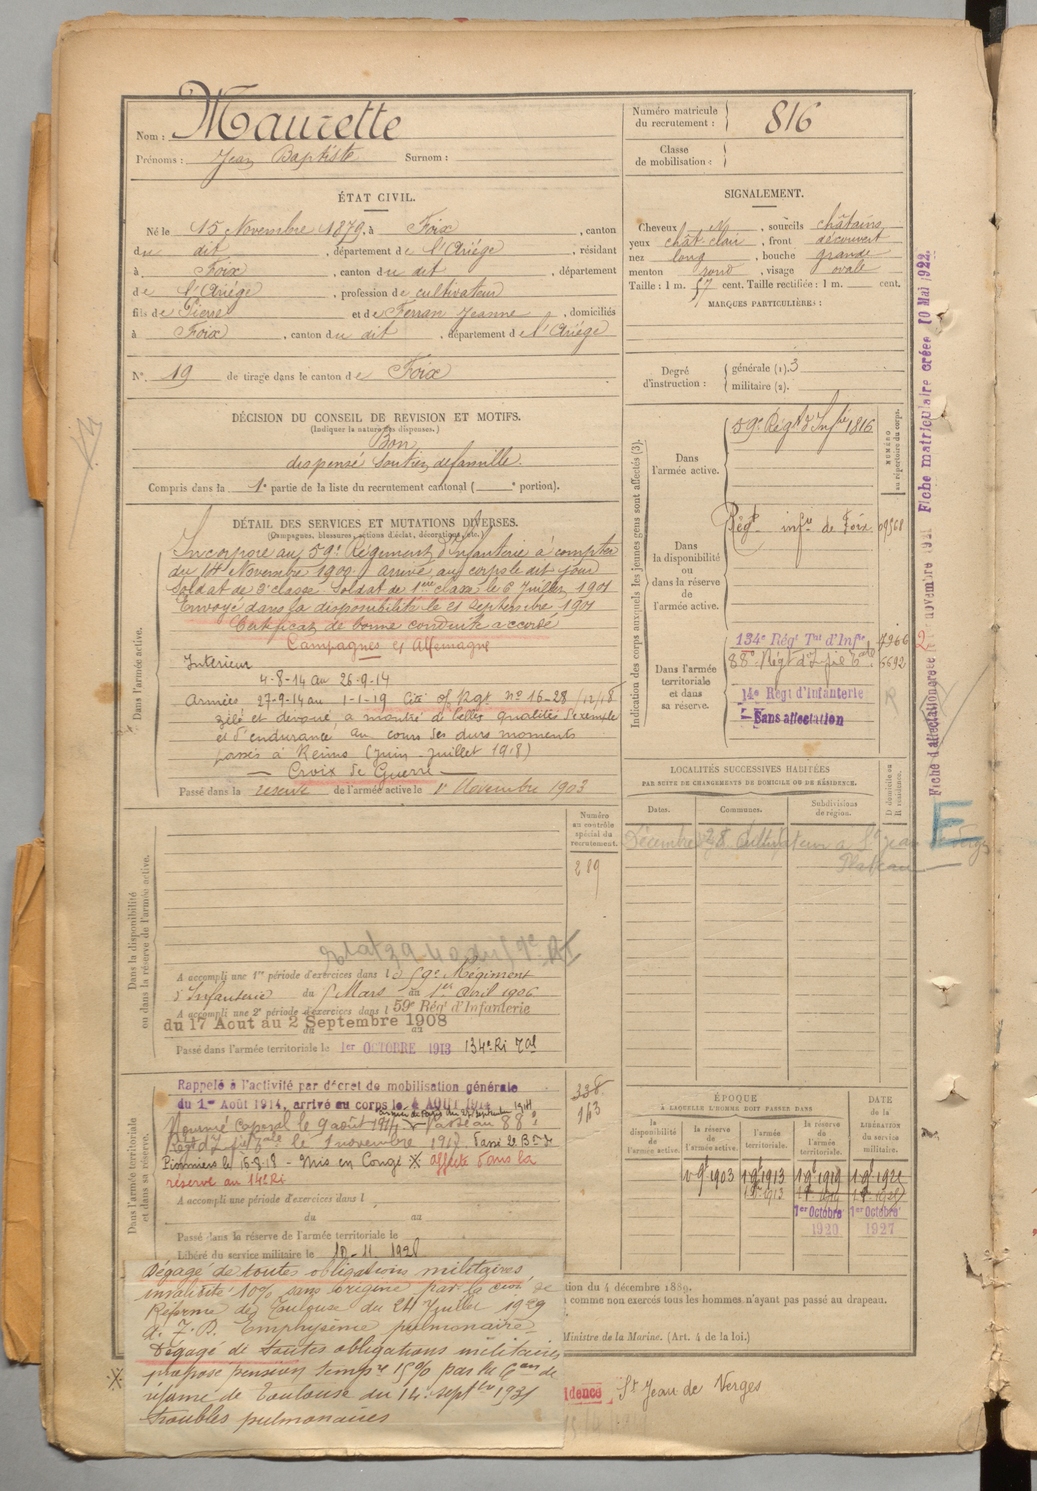 Nom : Maurette
Prénoms : Jean Baptiste Surnom :
Numéro matricule
du recrutement : 816
Classe
de mobilisation :
ÉTAT CIVIL.
Né le 15 Novembre 1879, à Foix, canton
du dit, département de l'Ariège, résidant
à Foix, canton du dit, département
de l'Ariège, profession de cultivateur
fils de Pierre et de Ferran Jeanne, domiciliés
à Foix, canton du dit, département de l'Ariège
N° 19 de tirage dans le canton de Foix
SIGNALEMENT.
Cheveux N, sourcils châtains
yeux chât. clair, front découvert
nez long, bouche grande
menton rond, visage ovale
Taille : 1 m. 57 cent. Taille rectifiée : 1 m. cent.
MARQUES PARTICULIÈRES :
Degré
d'instruction :
générale (1). 3
militaire (2).
DÉCISION DU CONSEIL DE REVISION ET MOTIFS.
(Indiquer la nature des dispenses.)
Bon
dispensé soutien de famille.
Compris dans la 1e partie de la liste du recrutement cantonal ( e portion).
DÉTAIL DES SERVICES ET MUTATIONS DIVERSES.
(Campagnes, blessures, actions d'éclat, décorations, etc.)
Dans l'armée active.
Incorporé au 59e Régiment d'Infanterie à compter
du 14 Novembre 1900. Arrivé au corps le dit jour
Soldat de 2e classe. Soldat de 1ere classe le 6 Juillet 1901
Envoyé dans la disponibilité le 21 septembre 1901
Certificat de bonne conduite accordé
Campagnes c/ Allemagne
Intérieur
4-8-14 au 26-9-14
Armées 27-9-14 au 1-1-19 Cité o/ Rgt n° 16-28/12/18
zélé et dévoué a montré de belles qualités d'exemple
et d'endurance au cours des durs moments
passés à Reims (Juin - Juillet 1918)
Croix de Guerre
Passé dans la réserve de l'armée active le 1er Novembre 1903
Indication des corps auxquels les jeunes gens sont affectés (3).
Dans
l'armée active.
59e Régt d'Infrie 1816
NUMÉRO
au répertoire du corps.
Dans
la disponibilité
ou
dans la réserve
de
l'armée active.
Régt infrie de Foix 09568
Dans l'armée
territoriale
et dans
sa réserve.
134e Régt Tal d'Infie 7266
88e Régt d'Inf 6692
14e Régt d'Infanterie
Sans affectation
LOCALITÉS SUCCESSIVES HABITÉES
PAR SUITE DE CHANGEMENTS DE DOMICILE OU DE RÉSIDENCE.
Dates. Communes. Subdivisions
de région.
D domicile ou
R résidence.
Décembre 28 Cultivateur à St Jean de Verges
E
Dans la disponibilité
ou dans la réserve de l'armée active.
Numéro
au contrôle
spécial du
recrutement.
289
A accompli une 1re période d'exercices dans l e 59e Régiment
d'Infanterie du 5 Mars au 1er Avril 1906
A accompli une 2e période d'exercices dans l 59e Régt d'Infanterie
du 17 Aout au 2 Septembre 1908
Passé dans l'armée territoriale le 1er OCTOBRE 1913 134e Ri Tal
Dans l'armée territoriale
et dans sa réserve.
Rappelé à l'activité par décret de mobilisation générale
du 1er Août 1914, arrivé au corps le 4 AOUT 1914
Nommé Caporal le 9 août 1914 Passé au 88e
le 1 novembre 1917 Passé
Pionniers le 16-8-18 - Mis en Congé ※ affecté dans la
réserve au 14e Ri
338
163
A accompli une période d'exercices dans l
du au
Passé dans la réserve de l'armée territoriale le
Libéré du service militaire le 10-11 1928
ÉPOQUE
À LAQUELLE L'HOMME DOIT PASSER DANS
DATE
de la
LIBÉRATION
du service
militaire.
la
disponibilité
de
l'armée active.
la réserve
de
l'armée active.
l'armée
territoriale.
la réserve
de
l'armée
territoriale.
1 9bre 1903 1 9bre 1913 1 9bre 1919 1 9bre 1921
1er Octobre 1er Octobre
1920 1927
Dégagé de toutes obligations militaires
invalidité 10% sans origine par la cion de
Réforme de Toulouse du 24 Juillet 1929
Emphysème pulmonaire
Dégagé de toutes obligations militaires
proposé pension tempre 15% par la Con de
réforme de Toulouse du 14 septbre 1931
troubles pulmonaires
tion du 4 décembre 1889.
comme non exercés tous les hommes n'ayant pas passé au drapeau.
Ministre de la Marine. (Art. 4 de la loi.)
idence St Jean de Verges
Fiche matriculaire créée 10 Mai 1922.
Fiche d'affectation créée novembre 1921